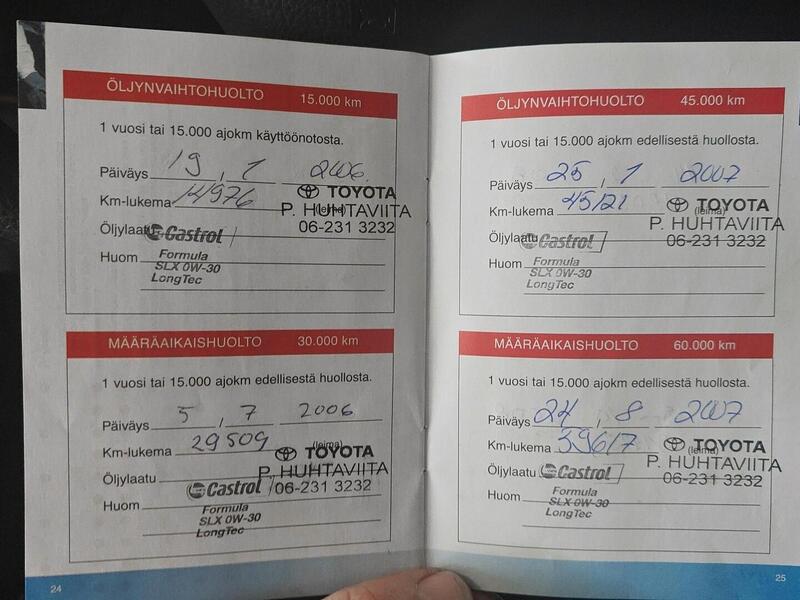 ÖLJYNVAIHTOHUOLTO 15.000 km
1 vuosi tai 15.000 ajokm käyttöönotosta.
Päiväys 19 / 1 2006
TOYOTA
Km-lukema 14976 (leima)
P. HUHTAVIITA
Öljylaatu Castrol 06-231 3232
Huom Formula
SLX 0W-30
LongTec
MÄÄRÄAIKAISHUOLTO 30.000 km
1 vuosi tai 15.000 ajokm edellisestä huollosta.
Päiväys 5 / 7 2006
Km-lukema 29509 (leima)
TOYOTA
P. HUHTAVIITA
Öljylaatu Castrol 06-231 3232
Huom Formula
SLX 0W-30
LongTec
24
ÖLJYNVAIHTOHUOLTO 45.000 km
1 vuosi tai 15.000 ajokm edellisestä huollosta.
Päiväys 25 / 1 2007
Km-lukema 45121 (leima)
TOYOTA
P. HUHTAVIITA
Öljylaatu Castrol 06-231 3232
Huom Formula
SLX 0W-30
LongTec
MÄÄRÄAIKAISHUOLTO 60.000 km
1 vuosi tai 15.000 ajokm edellisestä huollosta.
Päiväys 24 / 8 2007
Km-lukema 59617 (leima)
TOYOTA
P. HUHTAVIITA
Öljylaatu Castrol 06-231 3232
Huom Formula
SLX 0W-30
LongTec
25